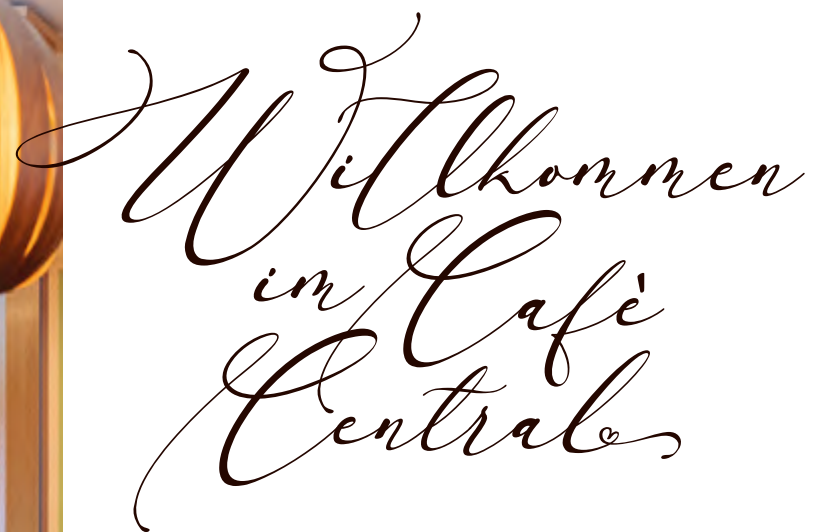 Willkommen
im Cafè
Central